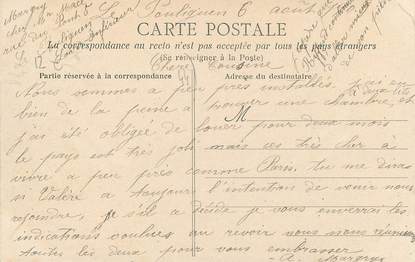 Le Pouliguen 6 août
Margry
chez
rue du Pont
Pouliguen
Loire Inférieure
CARTE POSTALE
La correspondance au recto n'est pas acceptée par tous les pays étrangers
(Se renseigner à la Poste)
Partie réservée à la correspondance
Adresse du destinataire
12
Chère
Nous sommes à peu près installés, j'ai eu
bien de la peine à trouver une chambre, et
M
j'ai été obligée de louer pour deux mois
le pays est très joli mais est très cher à
vivre à peu près comme Paris. tu me diras
si Valère a toujours l'intention de venir nous
rejoindre, s'il a décidé je vous enverrai les
indications voulues au revoir nous nous réunissons
toutes les deux pour vous embrasser
A. Margry